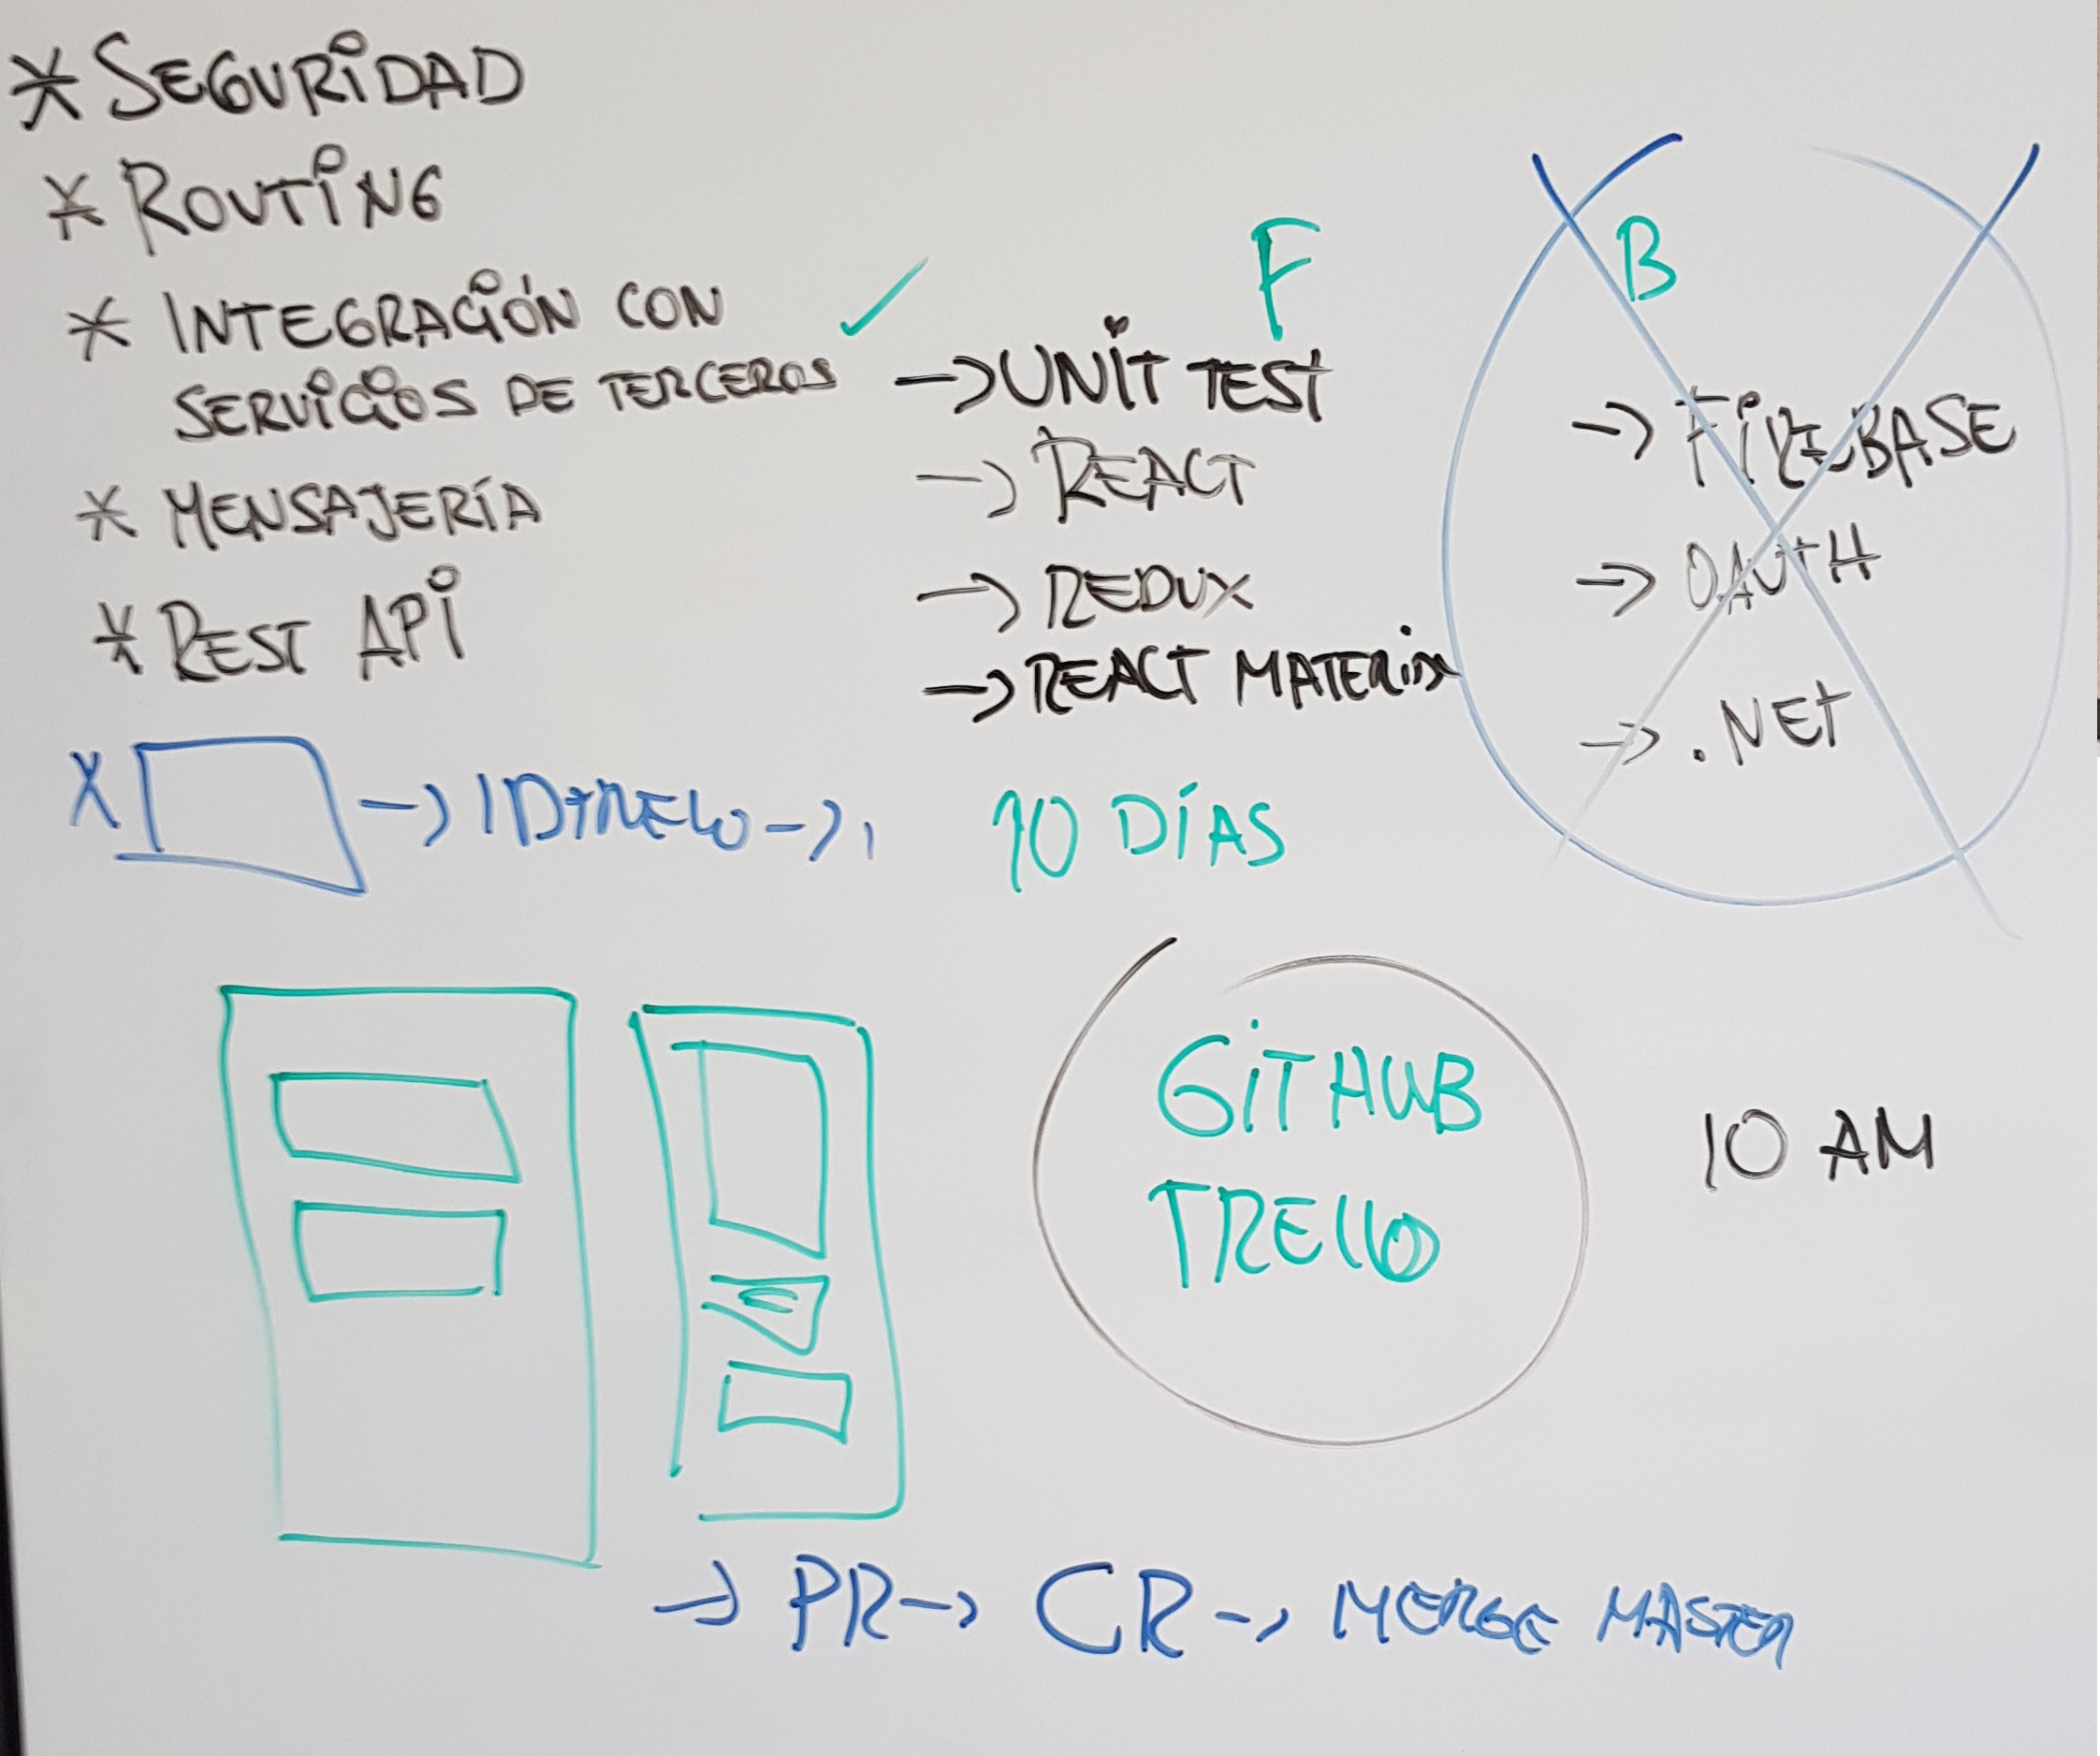 * SEGURIDAD
* ROUTING
* INTEGRACIÓN CON
SERVICIOS DE TERCEROS ✓
* MENSAJERÍA
* REST API
F
-> UNIT TEST
-> REACT
-> REDUX
-> REACT MATERIAL
B
-> FIREBASE
-> OAUTH
-> .NET
X -> ID TRELLO ->
10 DÍAS
GITHUB
TRELLO
10 AM
-> PR -> CR -> MERGE MASTER